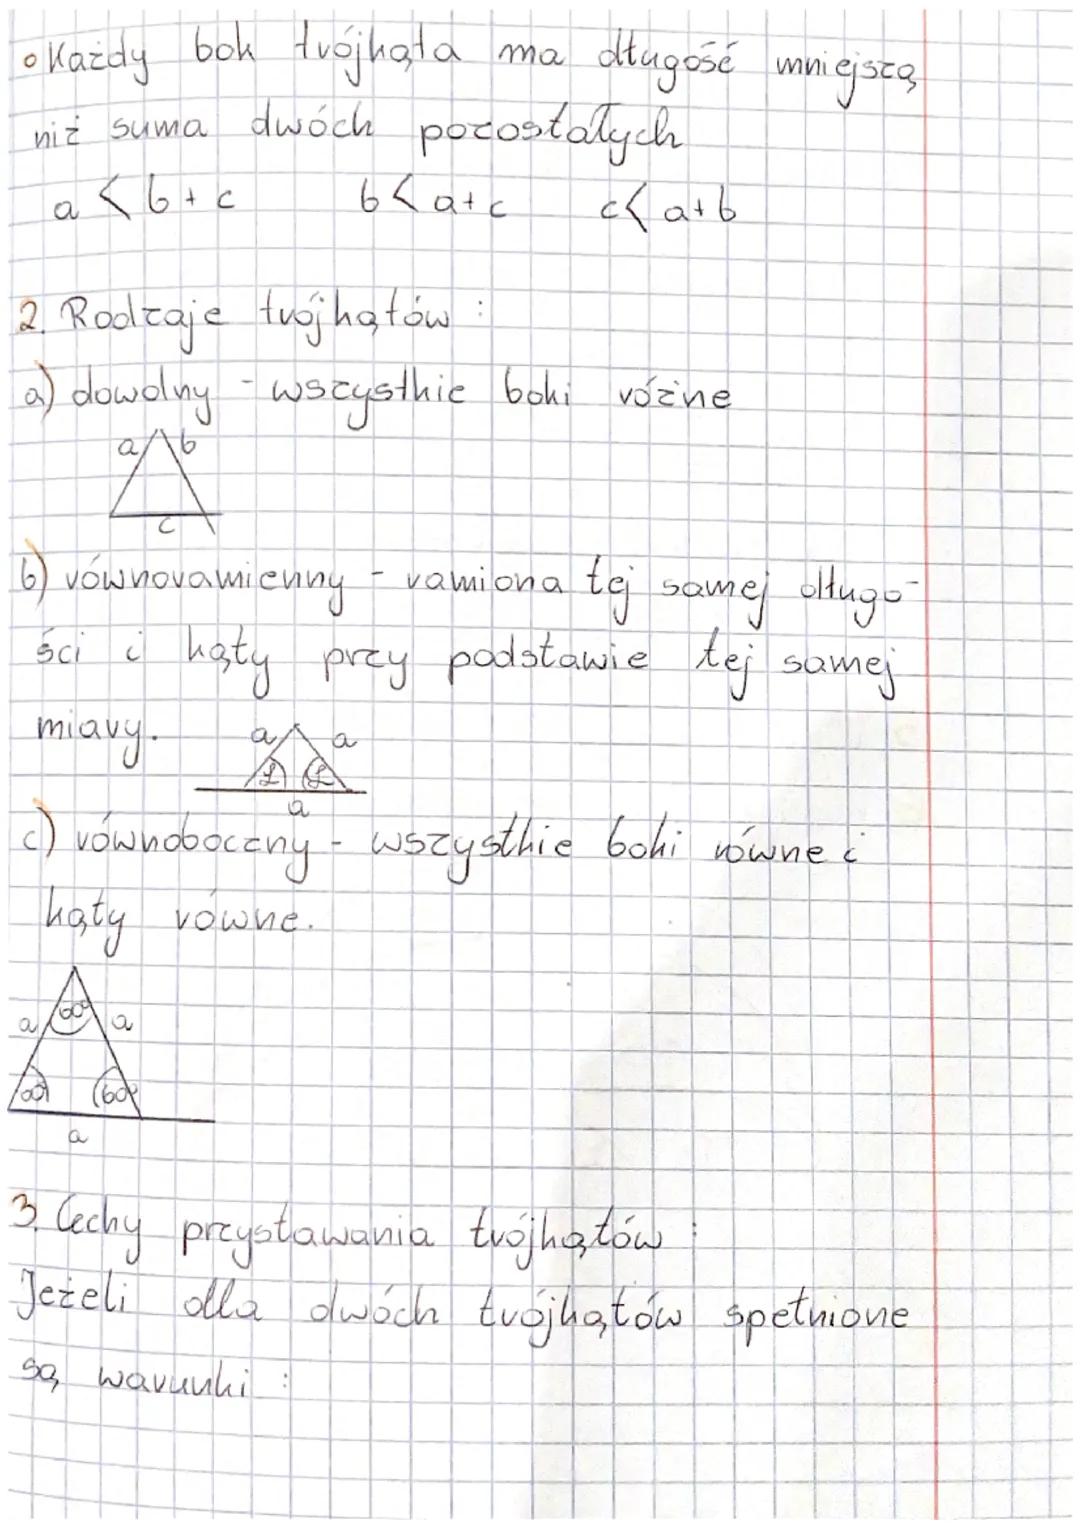 • Każdy bok trójkąta ma długość mniejszą
niż suma dwóch pozostałych
a < b + c    b < a + c    c < a + b
2. Rodzaje trójkątów :
a) dowolny - wszystkie boki różne
a b
c
b) równoramienny - ramiona tej samej długo-
ści i kąty przy podstawie tej samej
miary.
a a
α α
a
c) równoboczny - wszystkie boki równe i
kąty równe.
60°
a a
60° 60°
a
3. Cechy przystawania trójkątów :
Jeżeli dla dwóch trójkątów spełnione
są warunki :